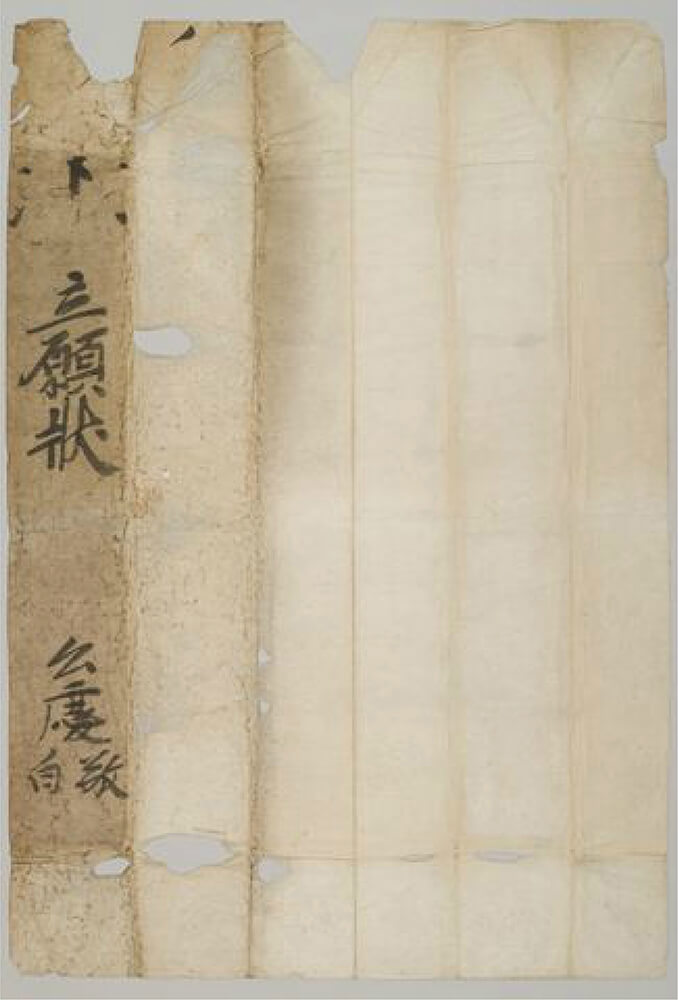 立願状
公慶敬白